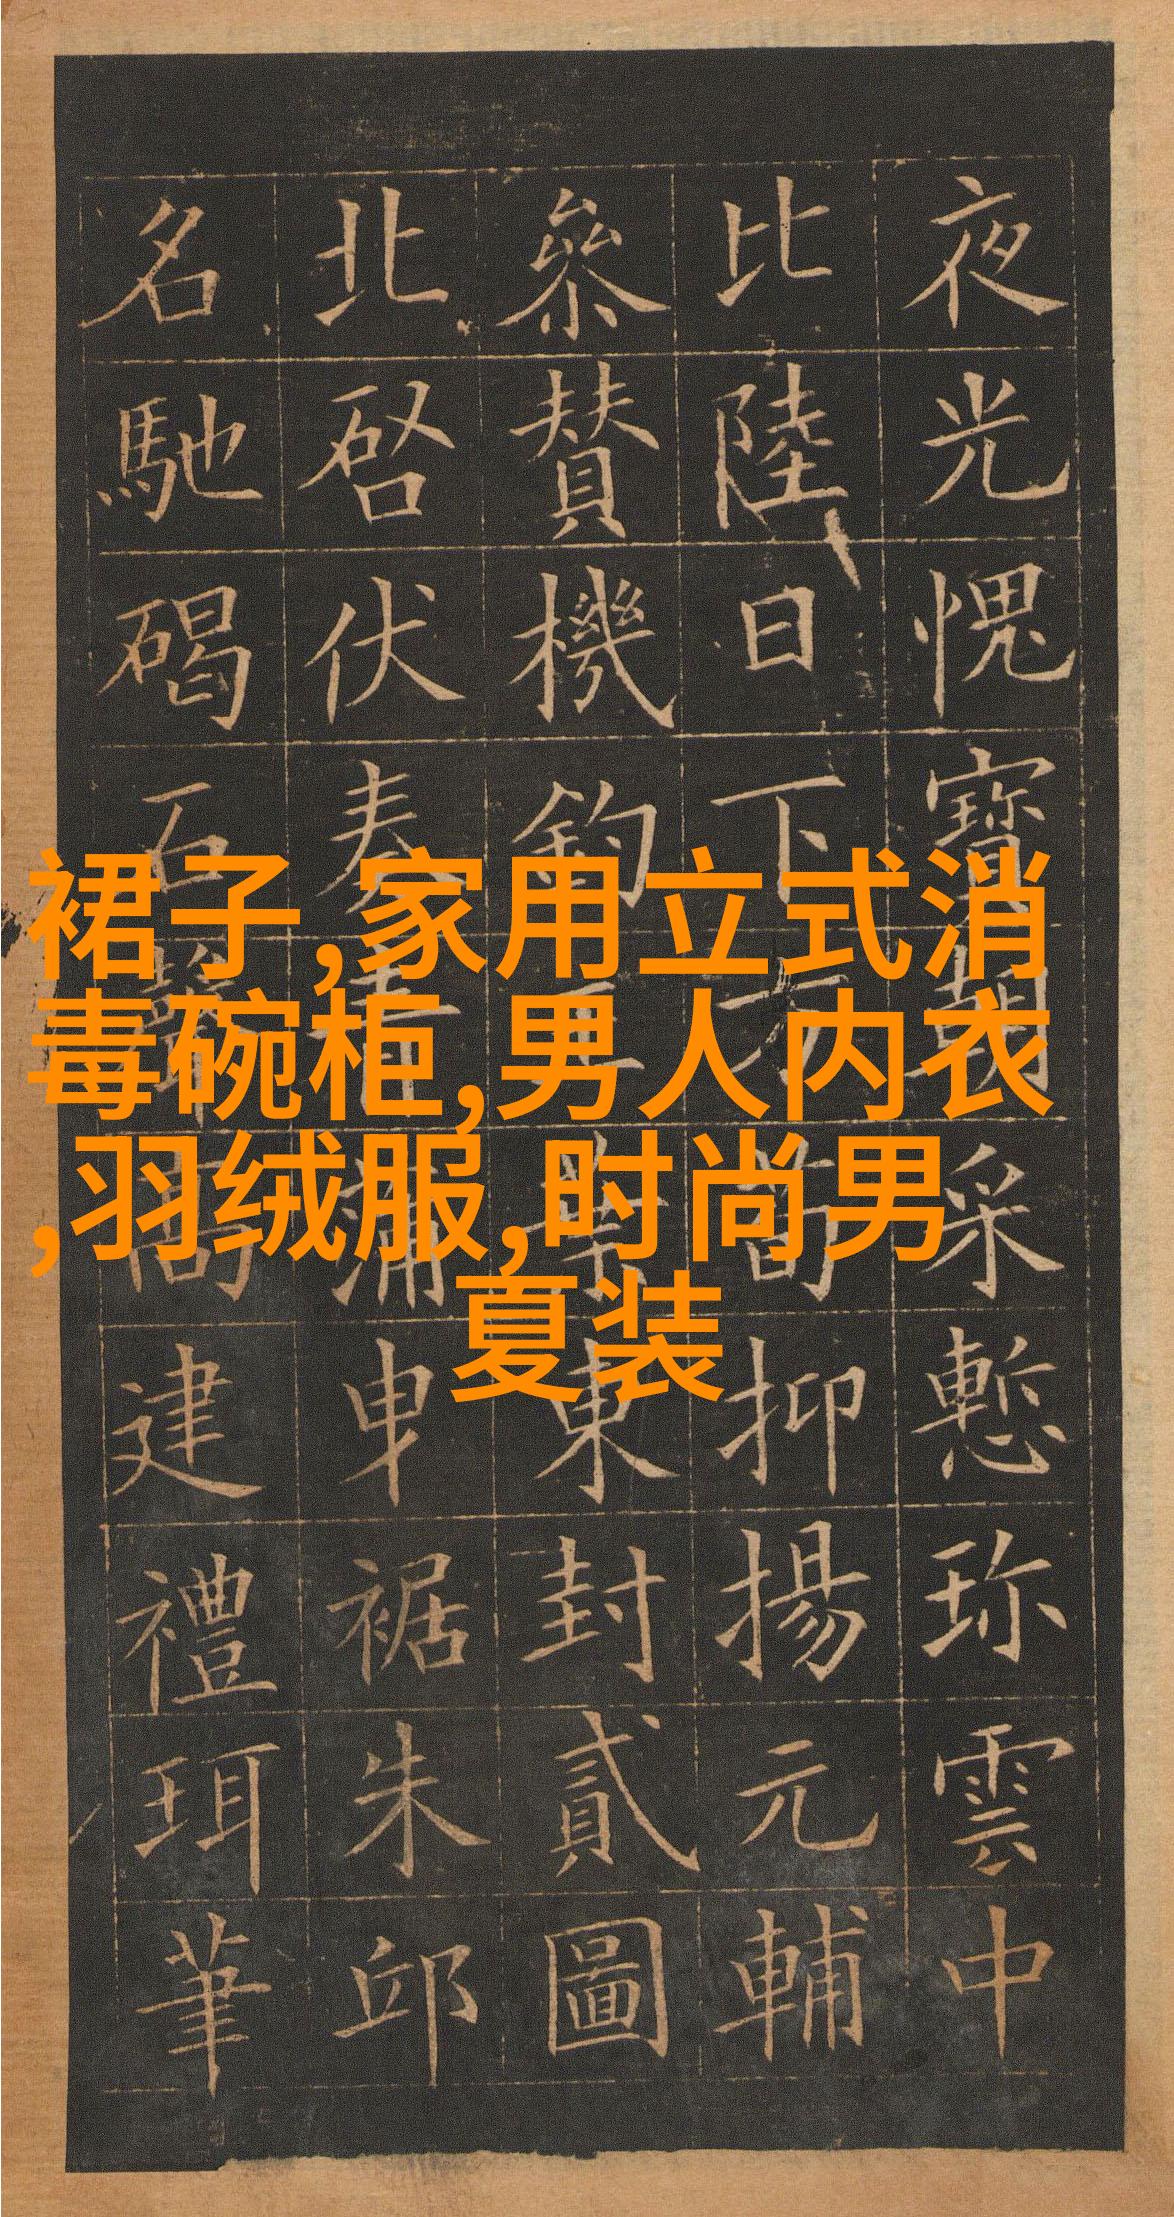 裙子,家用立式消
毒碗柜,男人内衣
,羽绒服,时尚男
夏装
夜光愧寶朝采慙珎雲中
比陸日下抑揚元輔
參賛機鈞東封貳圖
北啓伏奏青蒲申裾朱邱
名馳碣石高建禮珥筆